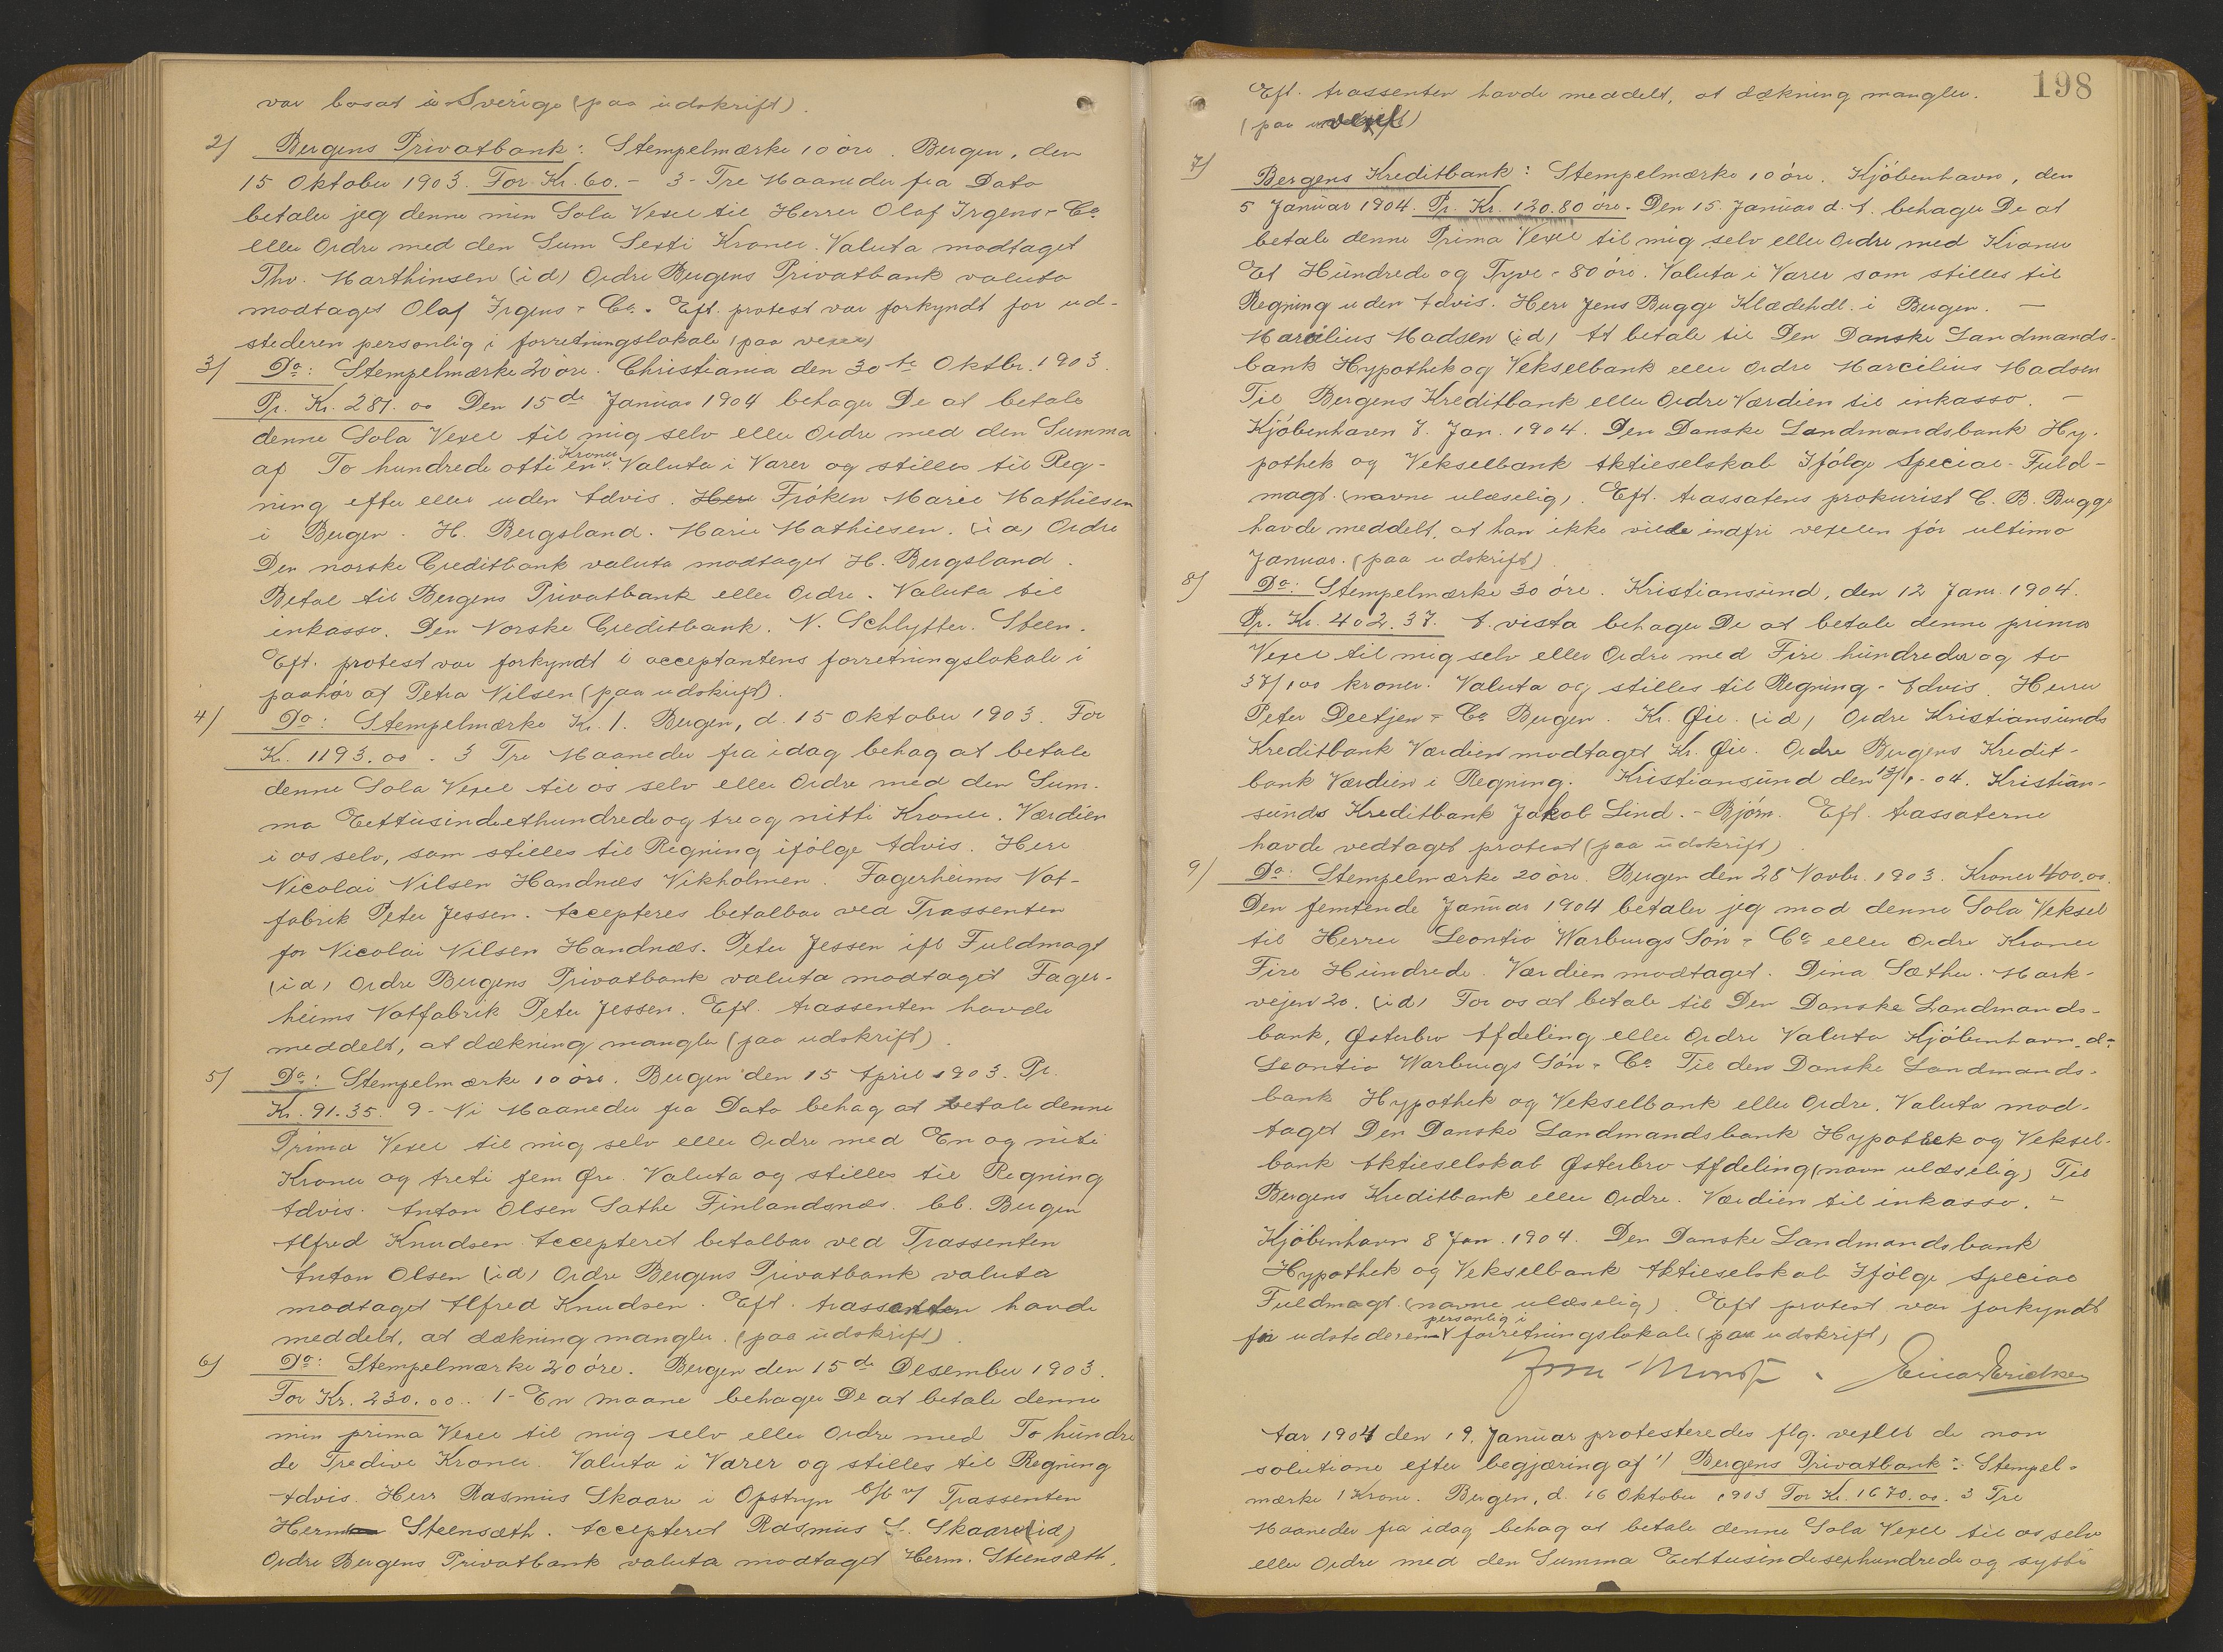 var bosat i Sverige (paa udskrift).
2) Bergens Privatbank: Stempelmærke 10 öre. Bergen, den
15 Oktober 1903. For Kr. 60.- 3 - Tre Maaneder fra Dato
betaler jeg denne min Sola Vexel til Herrer Olaf Irgens & Co
eller Ordre med den Sum Sexti Kroner. Valuta modtaget
Thv. Marthinsen (id) Ordre Bergens Privatbank valuta
modtaget Olaf Irgens & Co. Eft. protest var forkyndt for ud-
stederen personlig i forretningslokale (paa vexel)
3) Do: Stempelmærke 20 öre. Christiania den 30te Oktbr. 1903.
Pr. Kr. 281.00 Den 15de Januar 1904 behager De at betale
denne Sola Vexel til mig selv eller Ordre med den Summa
af To hundrede otti en Kroner. Valuta i Varer og stilles til Reg-
ning efter eller uden Advis. Herr Fröken Marie Mathiesen
i Bergen. H. Bergsland. Marie Mathiesen. (id) Ordre
Den norske Creditbank valuta modtaget H. Bergsland.
Betal til Bergens Privatbank eller Ordre. Valuta til
inkasso. Den Norske Creditbank. N. Schlytter. Steen.
Eft. protest var forkyndt i acceptantens forretningslokale i
paahör af Petra Nilsen (paa udskrift).
4) Do: Stempelmærke Kr. 1. Bergen, d. 15 Oktober 1903. For
Kr. 1193.00. 3 Tre Maaneder fra idag behag at betale
denne Sola Vexel til os selv eller Ordre med den Sum-
ma Eettusindethundrede og tre og nitti Kroner. Værdien
i os selv, som stilles til Regning ifölge Advis. Herr
Nicolai Nilsen Handnæs Vikholmen. Fagerheims Not-
fabrik Peter Jessen. Accepteres betalbar ved Trassenten
for Nicolai Nilsen Handnæs. Peter Jessen ifl Fuldmagt
(id) Ordre Bergens Privatbank valuta modtaget Fager-
heims Notfabrik Peter Jessen. Eft. trassenten havde
meddelt, at dækning mangler (paa udskrift).
5) Do: Stempelmærke 10 öre. Bergen den 15 April 1903. Pr.
Kr. 91.35. 9 - Ni Maaneder fra Dato behag at betale denne
Prima Vexel til mig selv eller Ordre med En og niti
Kroner og treti fem Øre. Valuta og stilles til Regning
Advis. Anton Olsen Sathe Finlandsnæs. bb. Bergen
Alfred Knudsen Accepteret betalbar ved Trassenten
Anton Olsen (id) Ordre Bergens Privatbank valuta
modtaget Alfred Knudsen. Eft. trassenten havde
meddelt, at dækning mangler. (paa udskrift).
6) Do: Stempelmærke 20 öre. Bergen den 15de Desember 1903.
For Kr. 230.00.. 1 - En maane behager De at betale denne
min prima Vexel til mig selv eller Ordre med To hundre
de Tredive Kroner. Valuta i Varer og stilles til Regning
Advis. Herr Rasmus Skaare i Opstryn b/b v/ Trassenten
Herm Steensæth. Accepteret Rasmus S. Skaare (id)
Ordre Bergens Privatbank valuta modtaget Herm. Steensæth.
198
Eft. trassenten havde meddelt, at dækning mangler.
(paa vexel)
7) Bergens Kreditbank: Stempelmærke 10 öre. Kjöbenhavn, den
5 Januar 1904. Pr. Kr. 120.80 öre. Den 15. Januar d. A. behager De at
betale denne Prima Vexel til mig selv eller Ordre med Kroner
Et Hundrede og Tyve - 80 öre. Valuta i Varer som stilles til
Regning uden Advis. Herr Jens Bugge Klædehdl. i Bergen. -
Marcilius Madsen (id) At betale til Den Danske Landmands-
bank Hypothek og Vekselbank eller Ordre Marcilius Madsen
Til Bergens Kreditbank eller Ordre Værdien til inkasso. -
Kjöbenhavn 7. Jan. 1904. Den Danske Landmandsbank Hy-
pothek og Vekselbank Aktieselskab Ifölge Special-Fuld-
magt. (navne ulæselig). Eft. trassatens prokurist C. B. Bugge
havde meddelt, at han ikke vilde indfri vexelen för ultimo
Januar. (paa udskrift).
8) Do: Stempelmærke 30 öre. Kristiansund, den 12 Janr. 1904.
Pr. Kr. 402.37. A. vista behager De at betale denne prima
Vexel til mig selv eller Ordre med Fire hundreder og to
37/100 kroner. Valuta og stilles til Regning - Advis. Herrer
Peter Deetjen & Co Bergen. Kr. Øie. (id) Ordre Kristiansunds
Kreditbank Værdien modtaget Kr. Øie. Ordre Bergens Kredit-
bank Værdien i Regning. Kristiansund den 13/1 - 04. Kristian-
sunds Kreditbank Jakob Lind. - Björn. Eft. trassaterne
havde vedtaget protest (paa udskrift).
9) Do: Stempelmærke 20 öre. Bergen den 28 Novbr. 1903. Kroner 400.00.
Den femtende Januar 1904 betaler jeg mod denne Sola Veksel
til Herrer Leontio Warburgs Sön & Co eller Ordre Kroner
Fire Hundrede. Værdien modtaget. Dina Sæther. Mark-
vejen 20. (id) For os at betale til Den Danske Landmands-
bank, Østerbro Afdeling eller Ordre Valuta Kjöbenhavn. d-
Leontio Warburgs Sön & Co Til den Danske Landmands-
bank Hypothek og Vekselbank eller Ordre. Valuta mod-
taget Den Danske Landmandsbank Hypothek og Veksel-
bank Aktieselskab Østerbro Afdeling (navn ulæselig) Til
Bergens Kreditbank eller Ordre. Værdien til inkasso. -
Kjöbenhavn 8 Jan. 1904. Den Danske Landmandsbank
Hypothek og Vekselbank Aktieselskab Ifölge Special
Fuldmagt (navne ulæselig). Eft protest var forkyndt
for udstederen personlig i forretningslokale (paa udskrift)
Einar Ericksen
Aar 1904 den 19. Januar protesteredes flg. vexler de non
solutione efter begjæring af 1/ Bergens Privatbank: Stempel-
mærke 1 Krone. Bergen, d. 16 Oktober 1903 For Kr. 1670.00. 3 Tre
Maaneder fra idag behag at betale denne Sola Vexel til os selv
eller Ordre med den Summa Eettusindesexhundrede og sytti